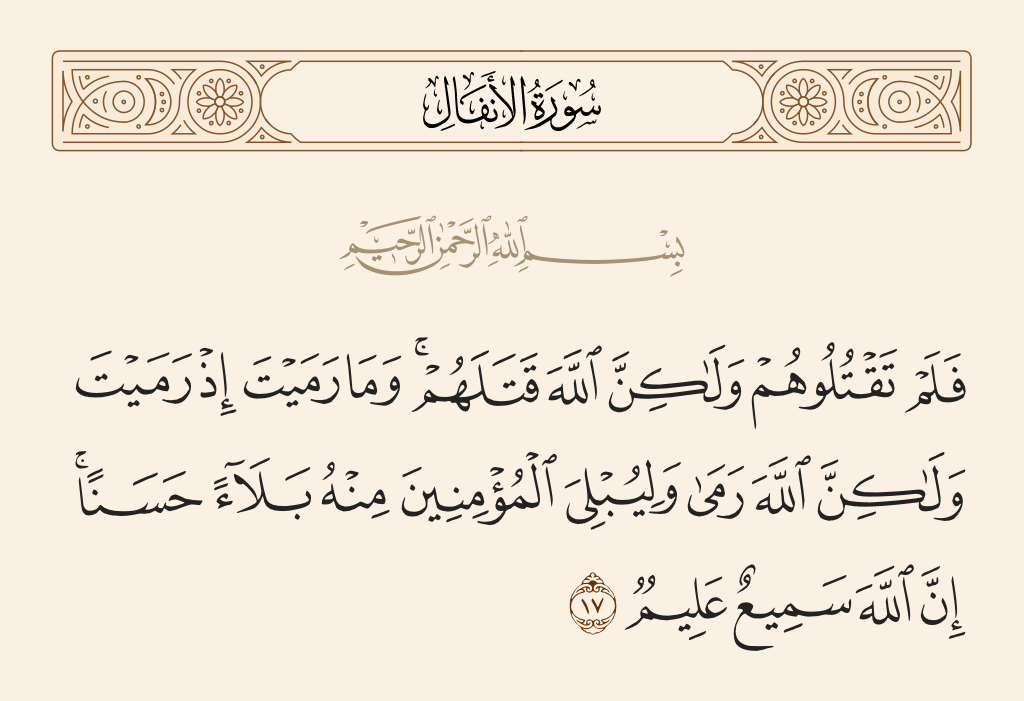 سُورَةُ الأَنفَالِ
بِسْمِ ٱللَّهِ ٱلرَّحْمَٰنِ ٱلرَّحِيمِ
فَلَمْ تَقْتُلُوهُمْ وَلَٰكِنَّ ٱللَّهَ قَتَلَهُمْ ۚ وَمَا رَمَيْتَ إِذْ رَمَيْتَ
وَلَٰكِنَّ ٱللَّهَ رَمَىٰ وَلِيُبْلِىَ ٱلْمُؤْمِنِينَ مِنْهُ بَلَآءً حَسَنًا ۚ
إِنَّ ٱللَّهَ سَمِيعٌ عَلِيمٌ ١٧